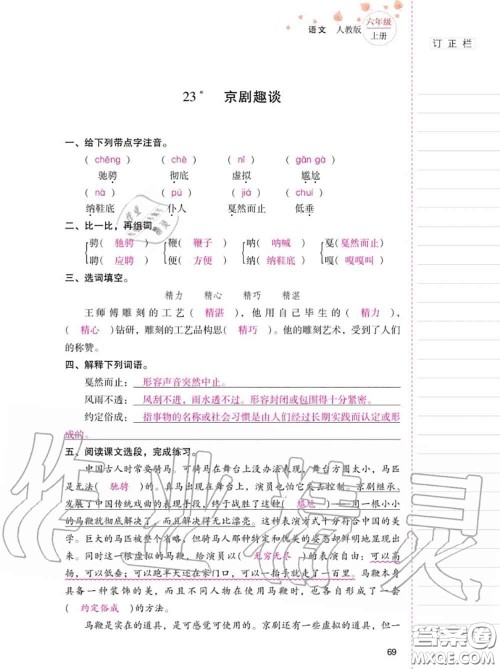 语文 人教版 六年级 上册
订正栏
23* 京剧趣谈
一、给下列带点字注音。
( chěng ) ( chè ) ( nǐ ) ( gān gà )
驰骋 彻底 虚拟 尴尬
( nà ) ( pú ) ( jiá ) ( chuí )
纳鞋底 仆人 戛然而止 低垂
二、比一比，再组词。
骋( 驰骋 ) 鞭( 鞭子 ) 呐( 呐喊 ) 戛( 戛然而止 )
聘( 应聘 ) 便( 方便 ) 纳( 纳鞋底 ) 嘎( 嘎嘎叫 )
三、选词填空。
精力 精心 精巧 精湛
王师傅雕刻的工艺( 精湛 )，他用自己毕生的( 精力 )，
( 精心 )钻研，雕刻的工艺品构思( 精巧 )。他的雕刻，受到了人们
的称赞。
四、解释下列词语。
戛然而止：形容声音突然中止。
风雨不透：风刮不进，雨水透不过。形容封闭或包围得十分紧密。
约定俗成：指事物的名称或社会习惯是由人们经过长期实践而认定或形
成的。
五、阅读课文选段，完成练习。
中国古人时常要骑马。可骑马在舞台上没法表现，舞台方圆太小，马匹
是无法( 驰骋 )的，真马也不能在舞台上表现。京剧继承、
发展了中国传统戏曲的表现手段，终于战胜了这种( 尴尬 )——用一根小小
的马鞭就彻底解决了，而且解决得无比漂亮。这支持并符合了中国的美
学。巨大的马匹被整个省略，但骑马人那种特定和优美的姿态却鲜明地呈现出
来。同时这一根虚拟的马鞭，给演员以( 无穷无尽 )的表演自由：可以高
扬，可以低垂；可以跑半天还在家门口，可以一抬腿就走了一百里。马鞭本
身具备一种装饰的美，而且不同人物在使用马鞭时，又各具备一套
( 约定俗成 )的方法。
马鞭是实在的道具，是可感觉可使用的。京剧还有一些虚拟的道具，但一
69
作业精灵